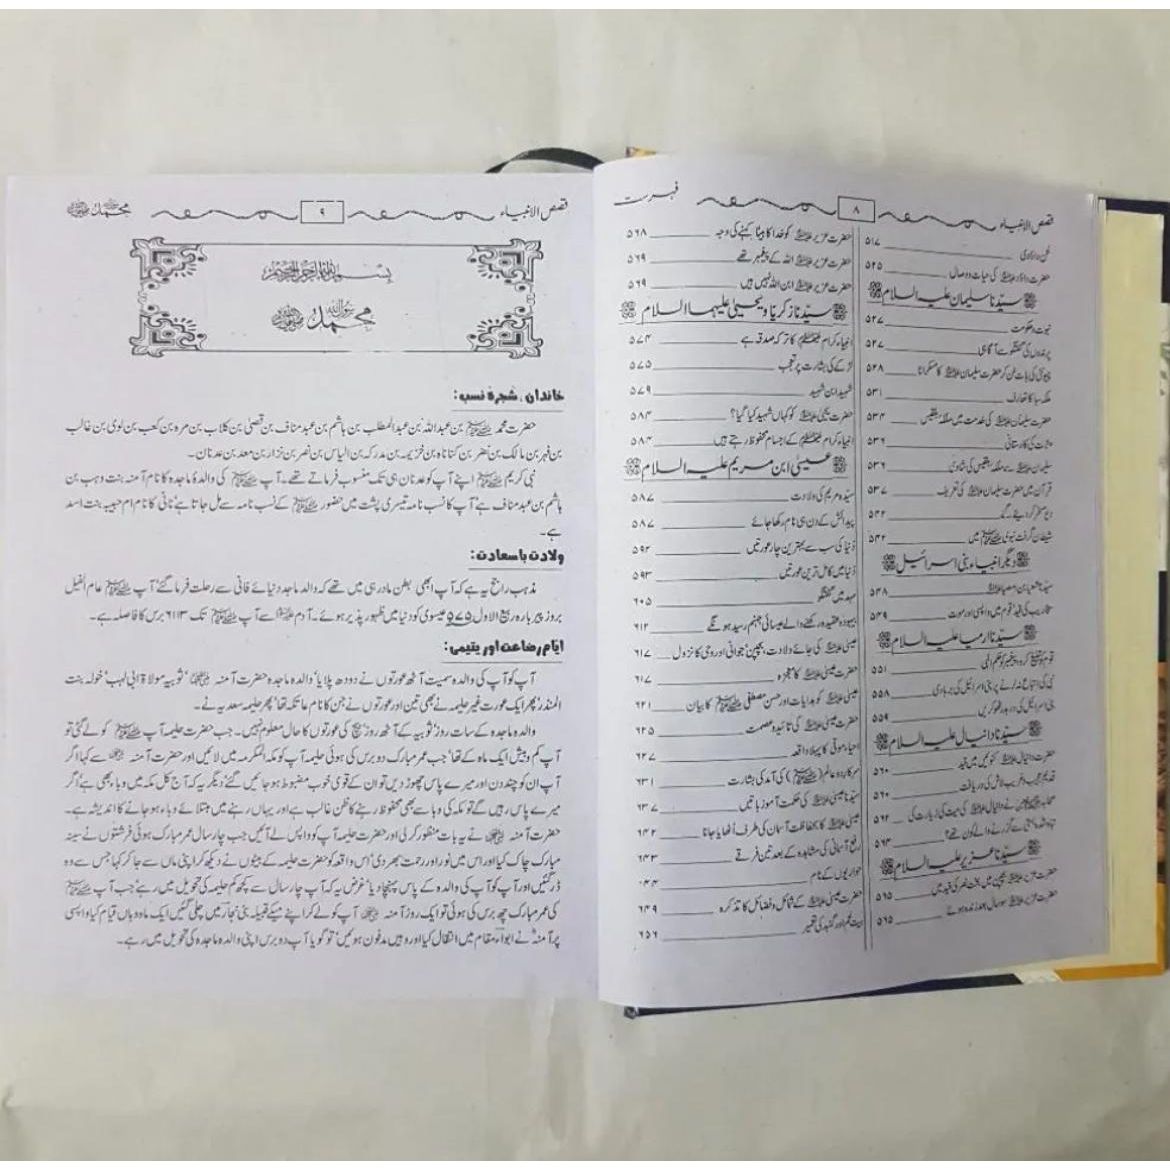 قصص الانبیاء
۸
فہرست
۵۱۷
حضرت داؤد علیہ السلام کی حیات و وصال ۵۲۵
سیّدنا سلیمان علیہ السلام
نبوت و حکومت ۵۲۷
پرندوں کی گفتگو سے آگاہی ۵۲۷
چیونٹی کی بات سن کر حضرت سلیمان علیہ السلام کا مسکرانا ۵۲۸
ملکہ سبا کا تعارف ۵۳۱
حضرت سلیمان علیہ السلام کی خدمت میں ملکہ بلقیس ۵۳۴
جنات کی کارستانی ۵۳۶
سلیمان علیہ السلام سے ملکہ بلقیس کی شادی ۵۳۶
قرآن میں حضرت سلیمان علیہ السلام کی تعریف ۵۳۷
دیو مسخر کر دیئے گئے ۵۴۲
شیطان گرفت نبوی ﷺ میں ۵۴۲
دیگر انبیاء بنی اسرائیل
سیّد شعیا بن امصیا علیہ السلام ۵۴۸
۵۴۹
سیّدنا ارمیا علیہ السلام
۵۵۱
۵۵۸
بنی اسرائیل کی در بدر ٹھوکریں ۵۵۹
سیّدنا دانیال علیہ السلام
حضرت دانیال علیہ السلام کنوئیں میں قید ۵۶۰
قدیم عجیب و غریب لاش کی دریافت ۵۶۰
۵۶۲
۵۶۳
سیّدنا عزیر علیہ السلام
حضرت عزیر علیہ السلام بچپن میں بخت نصر کی قید میں ۵۶۵
حضرت عزیر علیہ السلام سو سال بعد زندہ ہوئے ۵۶۵
حضرت عزیر علیہ السلام کو خدا کا بیٹا کہنے کی وجہ ۵۶۸
حضرت عزیر علیہ السلام اللہ کے پیغمبر تھے ۵۶۹
حضرت عزیر علیہ السلام ابن اللہ نہیں ہیں ۵۶۹
سیّدنا زکریا و یحییٰ علیہما السلام
انبیاء کرام علیہم السلام کا ترکہ صدقہ ہے ۵۷۴
لڑکے کی بشارت پر تعجب ۵۷۵
شہید ابن شہید ۵۷۹
حضرت یحییٰ علیہ السلام کو کہاں شہید کیا گیا؟ ۵۸۴
انبیاء کرام علیہم السلام کے اجسام محفوظ رہتے ہیں ۵۸۴
عیسیٰ ابن مریم علیہ السلام
سیّدہ مریم کی ولادت ۵۸۷
پیدائش کے دن ہی نام رکھا جائے ۵۸۷
دُنیا کی سب سے بہترین چار عورتیں ۵۹۲
دُنیا میں کامل ترین عورتیں ۵۹۳
مہد میں گفتگو ۶۰۵
بیہودہ عقیدہ رکھنے والے عیسائی جہنم رسید ہونگے ۶۱۲
عیسیٰ علیہ السلام کی جائے ولادت، بچپن، جوانی اور وحی کا نزول ۶۱۷
حضرت عیسیٰ علیہ السلام کا معجزہ ۶۱۷
عیسیٰ علیہ السلام کو ہدایات اور حسن مصطفی ﷺ کا بیان ۶۲۱
حضرت عیسیٰ علیہ السلام کی تائید و عصمت ۶۲۵
احیاء موتی کا پہلا واقعہ ۶۲۷
سرکار دو عالم (ﷺ) کی آمد کی بشارت ۶۳۱
سیّدنا عیسیٰ علیہ السلام کی حکمت آموز باتیں ۶۳۷
عیسیٰ علیہ السلام کا بحفاظت آسمان کی طرف اُٹھایا جانا ۶۴۲
رفع آسمانی کی مشاہدہ کے بعد تین فرقے ۶۴۳
حواریوں کے نام
حضرت عیسیٰ علیہ السلام کے شمائل و فضائل کا تذکرہ ۶۴۹
بیت لحم اور گنبد کی تعمیر ۶۵۶
قصص الانبیاء
۹
محمد ﷺ
بسم اللہ الرحمن الرحیم
محمد رسول اللہ ﷺ
خاندان، شجرۂ نسب:
حضرت محمد ﷺ بن عبداللہ بن عبدالمطلب بن ہاشم بن عبد مناف بن قصیٰ بن کلاب بن مرہ بن کعب بن لوی بن غالب
بن فہر بن مالک بن نضر بن کنانہ بن خزیمہ بن مدرکہ بن الیاس بن نضر بن نزار بن معد بن عدنان۔
نبی کریم ﷺ اپنے آپ کو عدنان ہی تک منسوب فرماتے تھے۔ آپ ﷺ کی والدۂ ماجدہ کا نام آمنہ بنت وہب بن
ہاشم بن عبد مناف ہے آپ کا نسب نامہ تیسری پشت میں حضور ﷺ کے نسب نامہ سے مل جاتا ہے‘ نانی کا نام ام حبیبہ بنت اسد
ہے۔
ولادت باسعادت:
مذہب راجح یہ ہے کہ آپ ابھی بطن مادر ہی میں تھے کہ والد ماجد دنیائے فانی سے رحلت فرما گئے‘ آپ ﷺ عام الفیل
بروز پیر بارہ ربیع الاول ۵۷۵ عیسوی کو دنیا میں ظہور پذیر ہوئے۔ آدم علیہ السلام سے آپ ﷺ تک ۶۱۱۳ برس کا فاصلہ ہے۔
ایّام رضاعت اور یتیمی:
آپ کو آپ کی والدہ سمیت آٹھ عورتوں نے دودھ پلایا‘ والدہ ماجدہ حضرت آمنہ رضی اللہ عنہا‘ ثوبیہ مولاۃ ابی لہب‘ خولہ بنت
المنذر‘ پھر ایک عورت غیر حلیمہ نے بھی تین اور عورتوں نے جن کا نام عاتکہ تھا‘ پھر حلیمہ سعدیہ نے۔
والدہ ماجدہ کے سات روز‘ ثوبیہ کے آٹھ روز‘ بیچ کی عورتوں کا حال معلوم نہیں۔ جب حضرت حلیمہ آپ ﷺ کو لے گئی تو
آپ کم و بیش ایک ماہ کے تھا‘ جب عمر مبارک دو برس کی ہوئی حلیمہ آپ کو مکہ المکرمہ میں لائیں اور حضرت آمنہ سے کہا اگر
آپ ان کو چند دن اور میرے پاس چھوڑ دیں تو ان کے قویٰ خوب مضبوط ہو جائیں گے‘ دیگر یہ کہ آج کل مکہ میں وبا بھی ہے‘ اگر
میرے پاس رہیں گے تو مکہ کی وبا سے بھی محفوظ رہنے کا ظن غالب ہے اور یہاں رہنے میں مبتلائے وباء ہو جانے کا اندیشہ ہے۔
حضرت آمنہ نے یہ بات منظور کر لی اور حضرت حلیمہ آپ کو واپس لے آئیں جب چار سال عمر مبارک ہوئی فرشتوں نے سینہ
مبارک چاک کیا اور اس میں نور اور رحمت بھر دی‘ اس واقعہ کو حضرت حلیمہ کے بیٹوں نے دیکھ کر اپنی ماں سے جا کر کہا جس سے وہ
ڈر گئیں اور آپ کو آپ کی والدہ کے پاس پہنچا دیا‘ غرض یہ کہ آپ چار سال سے کچھ کم حلیمہ کی تحویل میں رہے جب آپ ﷺ
کی عمر مبارک چھ برس کی ہوئی تو ایک روز آمنہ آپ کو لے کر اپنے میکے قبیلہ بنی نجار میں چلی گئیں ایک ماہ وہاں قیام کیا واپسی
پر آمنہ نے ابواء مقام میں انتقال کیا اور وہیں مدفون ہوئیں‘ تو گویا آپ دو برس اپنی والدہ ماجدہ کی تحویل میں رہے۔